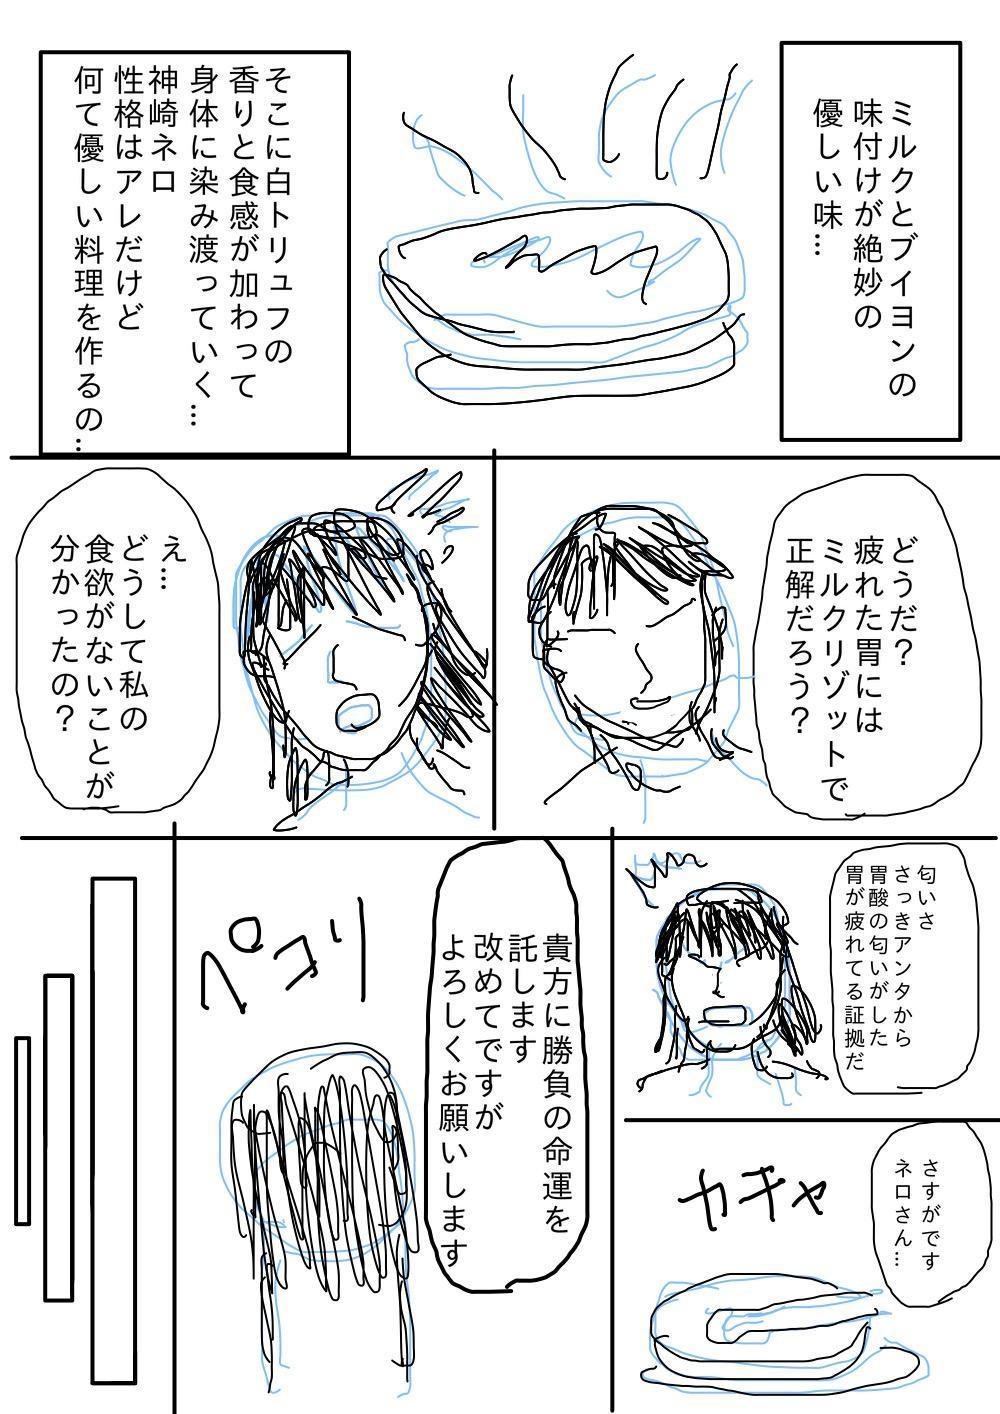 ミルクとブイヨンの
味付けが絶妙の
優しい味…
そこに白トリュフの
香りと食感が加わって
身体に染み渡っていく…
神崎ネロ
性格はアレだけど
何て優しい料理を作るの…
どうだ?
疲れた胃には
ミルクリゾットで
正解だろう?
え…
どうして私の
食欲がないことが
分かったの?
匂いさ
さっきアンタから
胃酸の匂いがした
胃が疲れてる証拠だ
さすがです
ネロさん…
カチャ
貴方に勝負の命運を
託します
改めてですが
よろしくお願いします
ペコリ